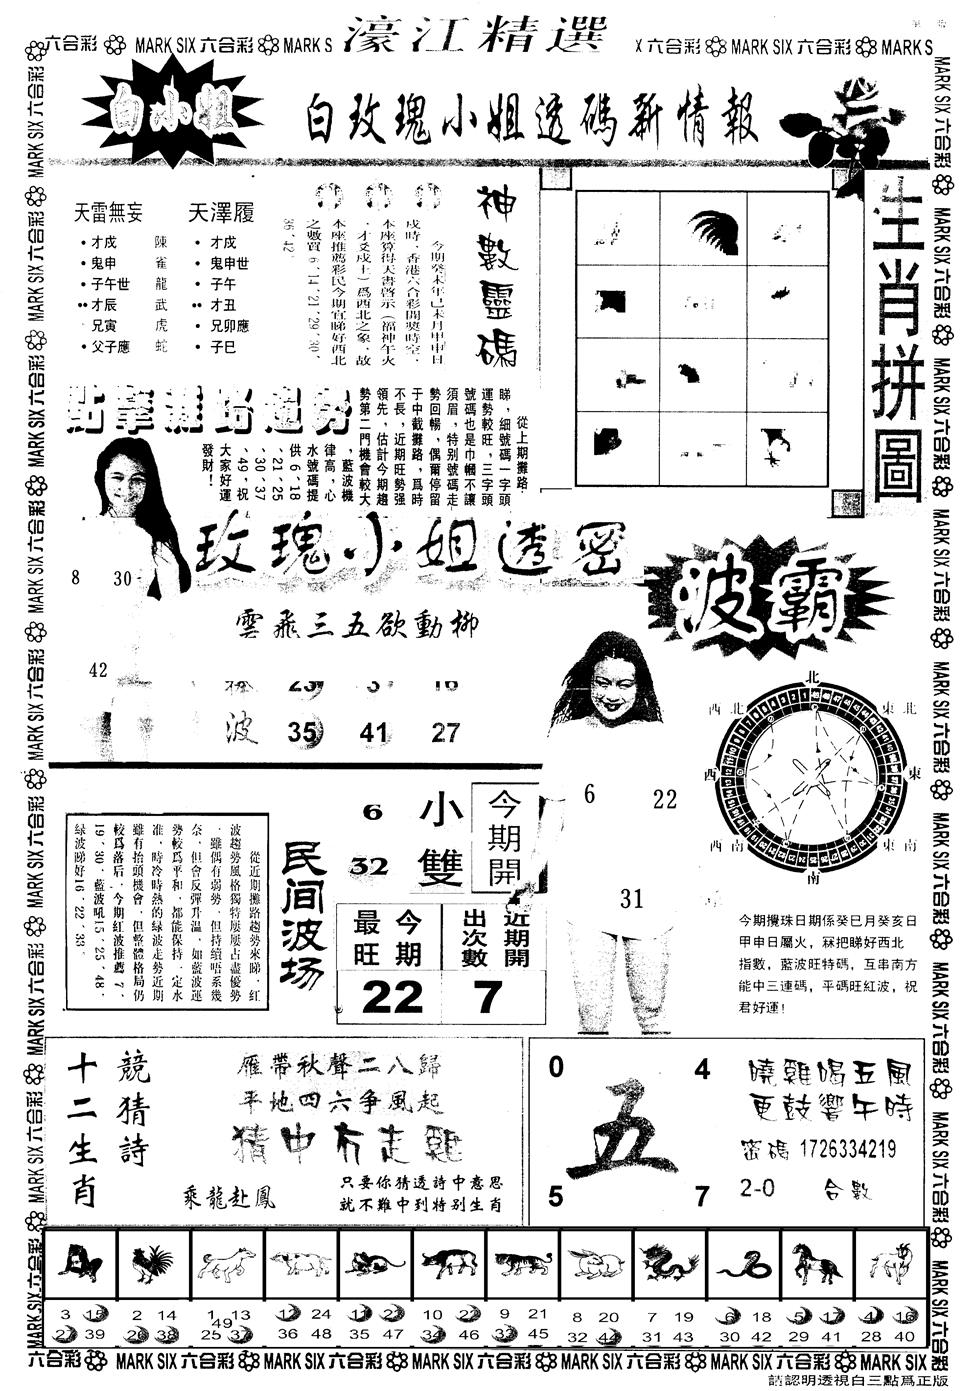 六合彩 MARK SIX 六合彩 MARK S
濠江精選
六合彩 MARK SIX 六合彩 MARK S
白小姐
白玫瑰小姐透碼新情報
天雷無妄
・才戌 陳
・鬼申 雀
・子午世 龍
・・才辰 武
兄寅 虎
・父子應 蛇
天澤履
・才戌
・鬼申世
・子午
・・才丑
・兄卯應
・子巳
神數靈碼
今期癸未年己未月甲申日
戌時，香港六合彩開獎時空，
本座算得天書啓示（福神午火
，才爻戌土）爲西北之象，故
本座推薦彩民今期宜睇好西北
之數買6、14、21、29、30、
36、42
生肖拼圖
點擊攤路趨勢
從上期攤路
睇，細號碼一字頭
運勢較旺，三字頭
號碼也是巾幗不讓
須眉，特別號碼走
勢回暢，偶爾停留
于中截攤路，爲時
不長，近期旺勢强
領先，估計今期趨
勢第二門機會較大
，藍波機
律高，心
水號碼提
供6、18
、21、25
、30、37
、49，祝
大家好運
發財！
玫瑰小姐透密
雲飛三五欲動柳
8 30
42
23 3 16
波 35 41 27
波霸
北
西北 東北
西 東
西南 東南
南
6 22
31
今期攪珠日期係癸巳月癸亥日
甲申日屬火，冧把睇好西北
指數，藍波旺特碼，互串南方
能中三連碼，平碼旺紅波，祝
君好運!
從近期攤路趨勢來睇，紅
波趨勢風格獨特屢屢占盡優勢
，雖偶有弱勢，但持續唔系幾
奈，但會反彈升温，如藍波運
勢較爲平和，都能保持一定水
准，時冷時熱的绿波走勢近期
雖有抬頭機會，但整體格局仍
較爲落后，今期紅波推薦7、
19、30，藍波吼15、25、48，
绿波睇好16、22、33．
民间波场
6 小
32 雙
今期開
今期最旺
22
近期開出次數
7
十二生肖
競猜詩
雁帶秋聲二八歸
平地四六争風起
猜中有走雞
乘龍赴鳳
只要你猜透詩中意思
就不難中到特别生肖
0 4
五
5 7
曉雞唱五風
更鼓響午時
密碼 1726334219
2-0 合數
3 15 27 39
2 14 26 38
1 13 49 25 37
12 24 36 48
11 23 35 47
10 22 34 46
9 21 33 45
8 20 32 44
7 19 31 43
6 18 30 42
5 17 29 41
4 16 28 40
六合彩 MARK SIX 六合彩 MARK SIX 六合彩 MARK SIX 六合彩 MARK SIX 六合彩 MARK SIX 六合彩 MARK SIX
請認明透視白三點爲正版